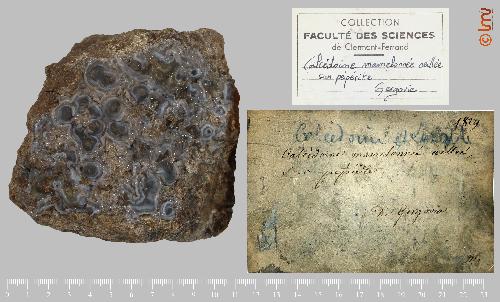 COLLECTION
FACULTÉ DES SCIENCES
de Clermont-Ferrand
Calcédoine mamelonnée œillée
sur pépérite
Gergovie
lmv
1824
Calcédoine
Calcédoine mamelonnée œillée
Sur pépérite
D. Gergovia
0 1 2 3 4 5 6 7 8 9 10 11 12 13 14 15 16 17 18 19 20 21